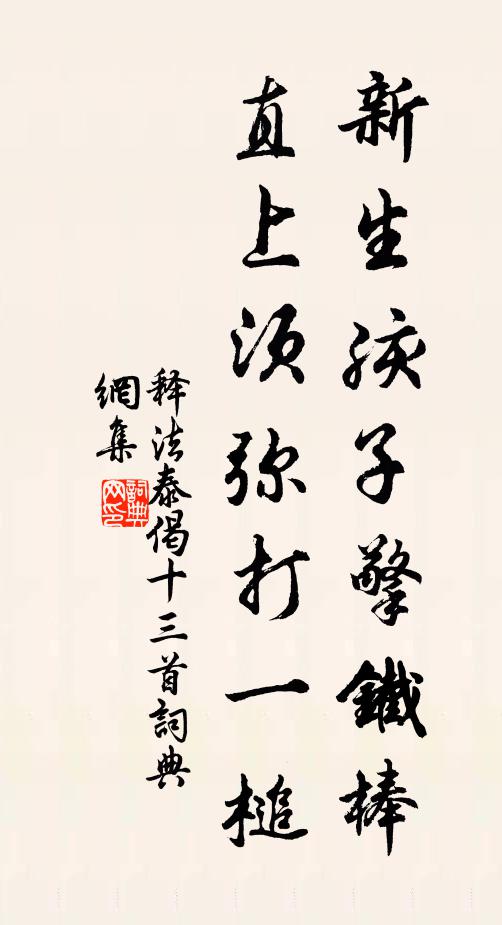 新生孩子擎鐵棒
直上須弥打一槌
释法泰偈十三首詞典
網集
詞典
网印